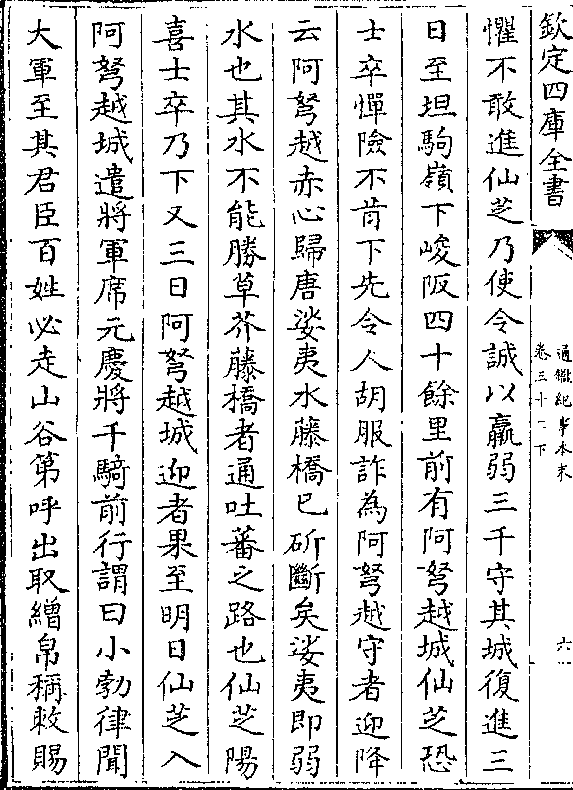 欽定四庫全書
通鑑紀事本末
卷三十二下
六
懼不敢進仙芝乃使令誠以羸弱三千守其城復進三
日至坦駒嶺下峻阪四十餘里前有阿弩越城仙芝恐
士卒憚險不肯下先令人胡服詐為阿弩越守者迎降
云阿弩越赤心歸唐娑夷水藤橋已斫斷矣娑夷即弱
水也其水不能勝草芥藤橋者通吐蕃之路也仙芝陽
喜士卒乃下又三日阿弩越城迎者果至明日仙芝入
阿弩越城遣將軍席元慶將千騎前行謂曰小勃律聞
大軍至其君臣百姓必走山谷第呼出取繒帛稱敕賜